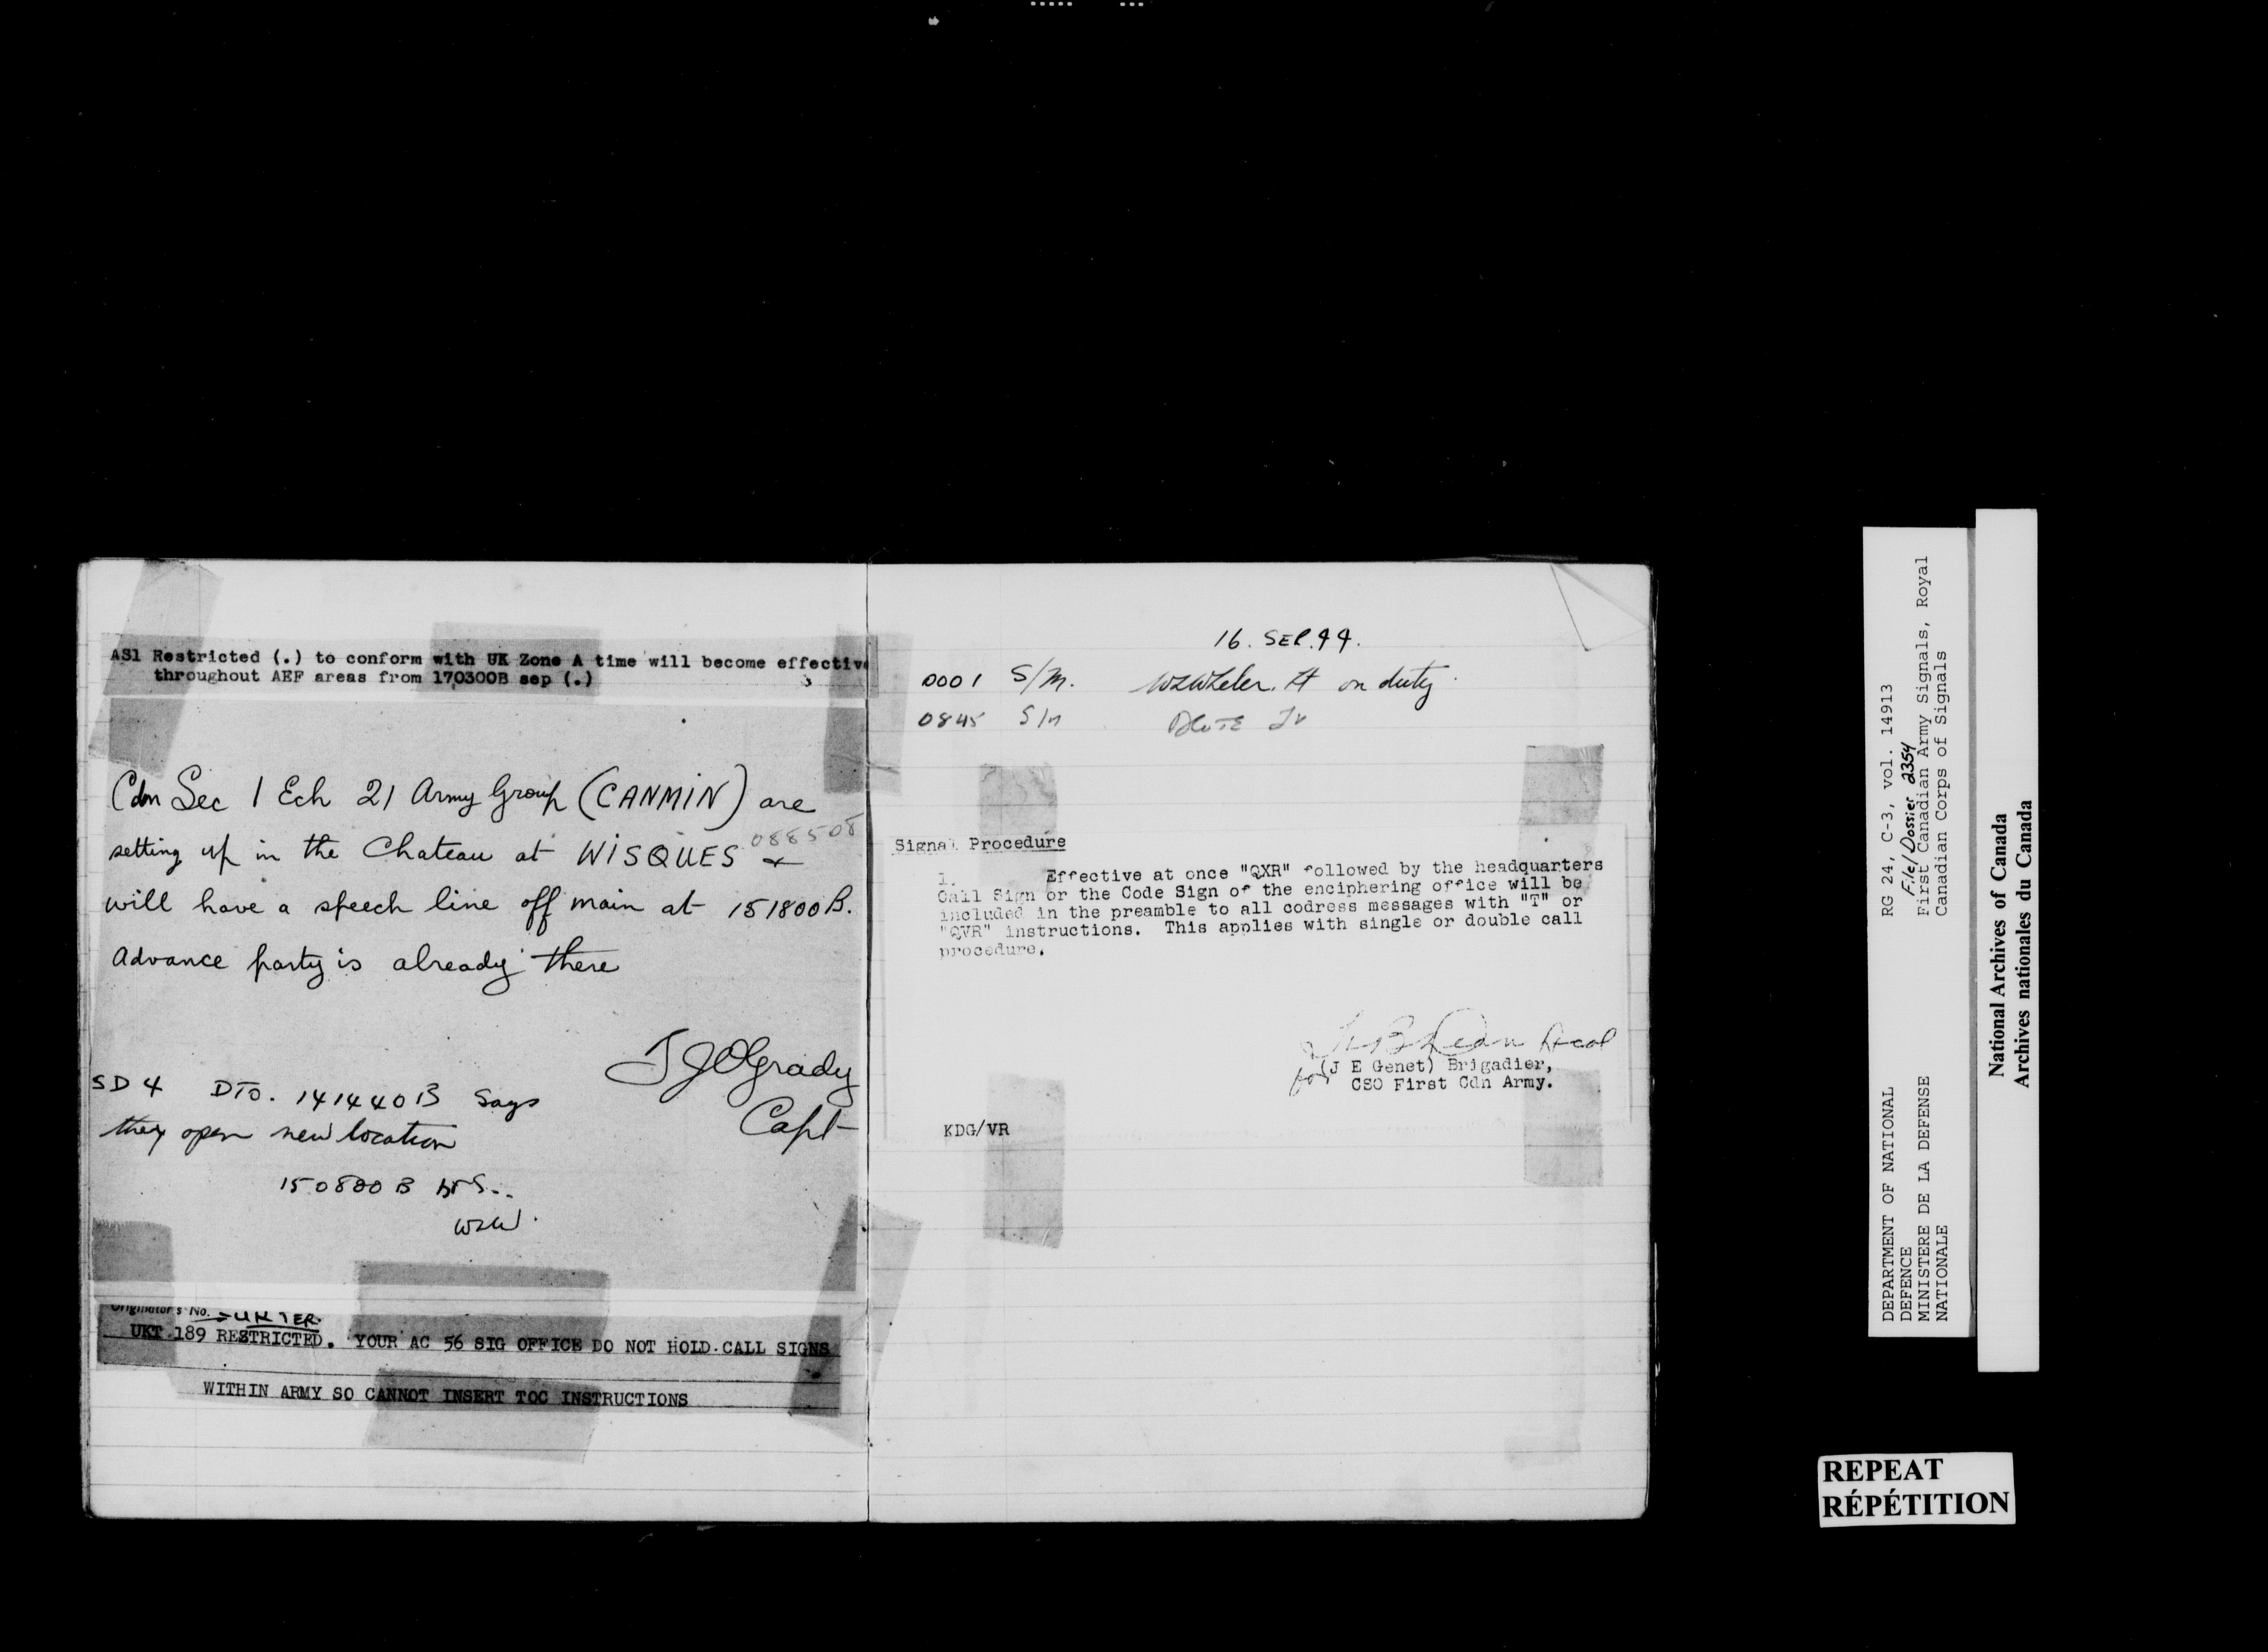 AS1 Restricted (.) to conform with UK Zone A time will become effective
throughout AEF areas from 170300B sep (.)
Cdn Sec 1 Ech 21 Army Group (CANMIN) are
setting up in the Chateau at WISQUES 088508 &
will have a speech line off main at 151800B.
Advance party is already there
TJOGrady
Capt
SD 4 DTO. 141440B says
they open new location
150800 B hrs..
WZW.
Originator's No.
UKT 189 RESTRICTED. YOUR AC 56 SIG OFFICE DO NOT HOLD CALL SIGNS
WITHIN ARMY SO CANNOT INSERT TOC INSTRUCTIONS
16. SEP. 44.
0001 S/M. on duty
0845 S/M
Signal Procedure
1. Effective at once "QXR" followed by the headquarters
Call Sign or the Code Sign of the enciphering office will be
included in the preamble to all codress messages with "T" or
"QVR" instructions. This applies with single or double call
procedure.
for (J E Genet) Brigadier,
CSO First Cdn Army.
KDG/VR
RG 24, C-3, vol. 14913
File/Dossier 2354
First Canadian Army Signals, Royal
Canadian Corps of Signals
DEPARTMENT OF NATIONAL
DEFENCE
MINISTERE DE LA DEFENSE
NATIONALE
National Archives of Canada
Archives nationales du Canada
REPEAT
RÉPÉTITION